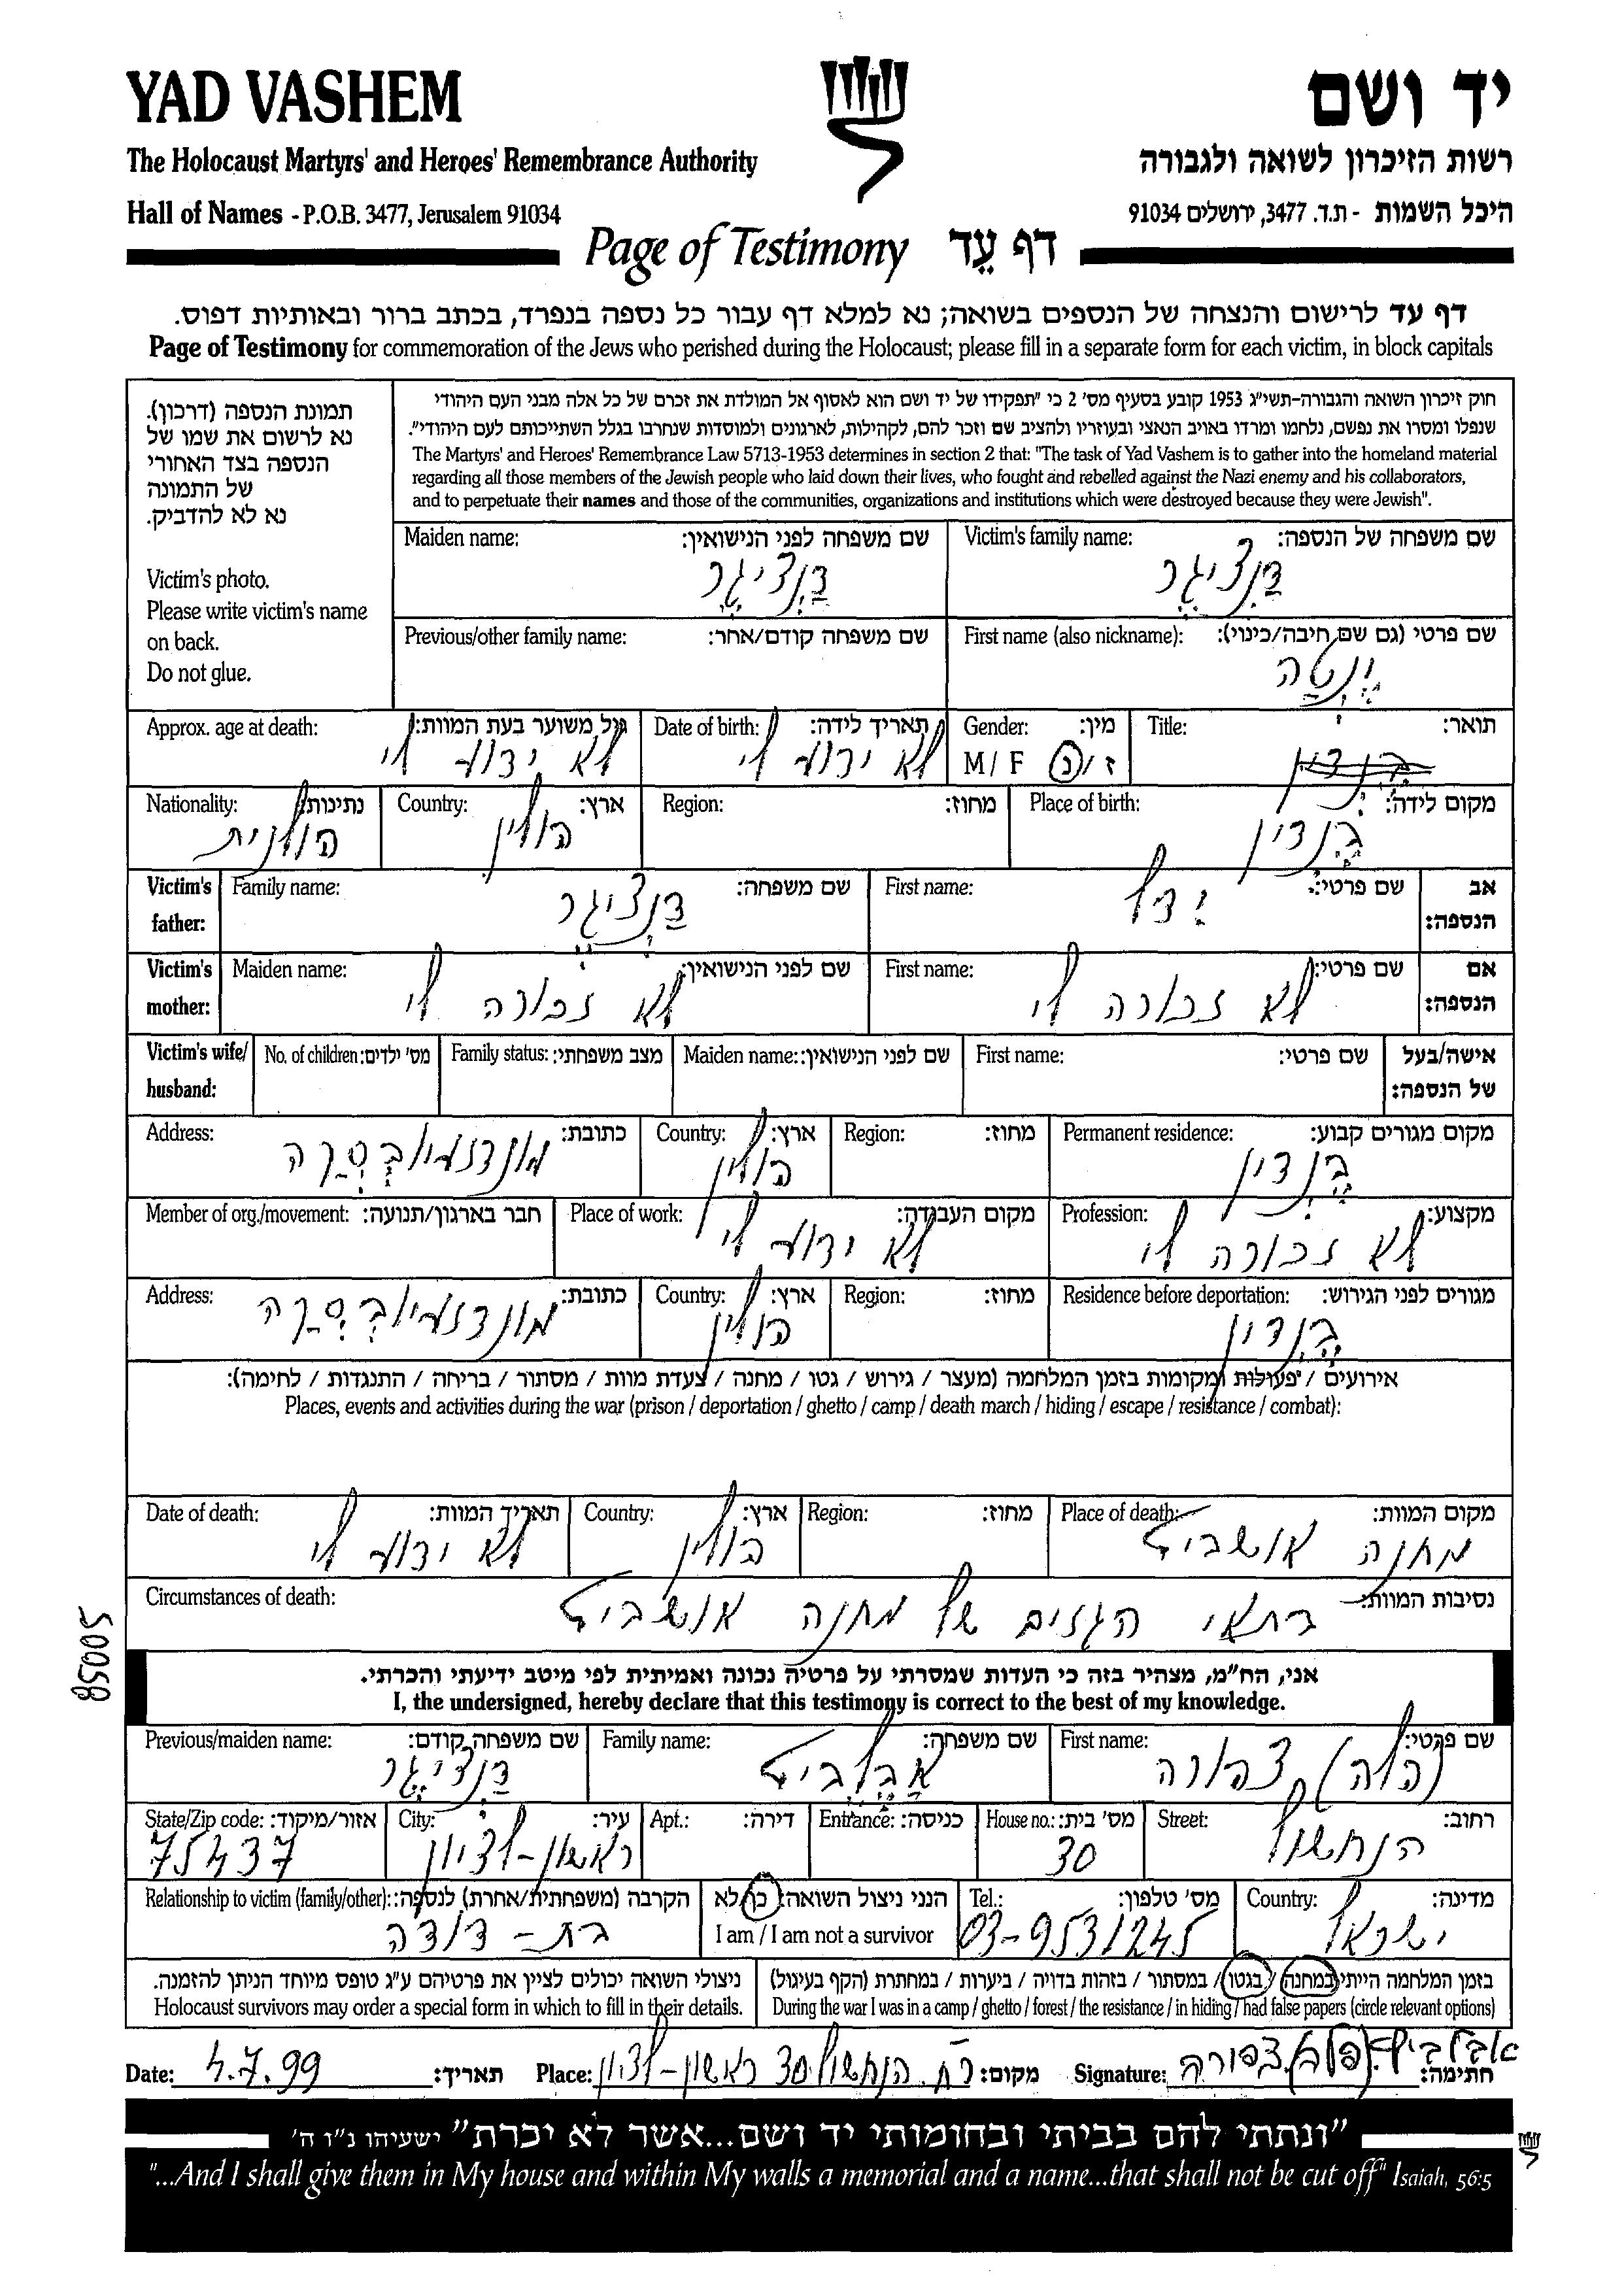 YAD VASHEM יד ושם
The Holocaust Martyrs' and Heroes' Remembrance Authority רשות הזיכרון לשואה ולגבורה
Hall of Names - P.O.B. 3477, Jerusalem 91034 היכל השמות - ת.ד. 3477, ירושלים 91034
Page of Testimony דף עֵד
דף עד לרישום והנצחה של הנספים בשואה; נא למלא דף עבור כל נספה בנפרד, בכתב ברור ובאותיות דפוס.
Page of Testimony for commemoration of the Jews who perished during the Holocaust; please fill in a separate form for each victim, in block capitals
תמונת הנספה (דרכון).
נא לרשום את שמו של
הנספה בצד האחורי
של התמונה
נא לא להדביק.
Victim's photo.
Please write victim's name
on back.
Do not glue.
חוק זיכרון השואה והגבורה-תשי"ג 1953 קובע בסעיף מס' 2 כי "תפקידו של יד ושם הוא לאסוף אל המולדת את זכרם של כל אלה מבני העם היהודי
שנפלו ומסרו את נפשם, נלחמו ומרדו באויב הנאצי ובעוזריו ולהציב שם וזכר להם, לקהילות, לארגונים ולמוסדות שנחרבו בגלל השתייכותם לעם היהודי".
The Martyrs' and Heroes' Remembrance Law 5713-1953 determines in section 2 that: "The task of Yad Vashem is to gather into the homeland material
regarding all those members of the Jewish people who laid down their lives, who fought and rebelled against the Nazi enemy and his collaborators,
and to perpetuate their names and those of the communities, organizations and institutions which were destroyed because they were Jewish".
Victim's family name: שם משפחה של הנספה: Maiden name: שם משפחה לפני הנישואין:
דַנְצִיגֶר דַנְצִיגֶר
First name (also nickname): שם פרטי (גם שם חיבה/כינוי): Previous/other family name: שם משפחה קודם/אחר:
יֶנְטָה
Title: תואר: Gender: מין: Date of birth: תאריך לידה: Approx. age at death: גיל משוער בעת המוות:
M / F ז / נ לא ידוע לי לא ידוע לי
Place of birth: מקום לידה: Region: מחוז: Country: ארץ: Nationality: נתינות:
בֶּנְדִין פולין פולנית
Victim's father: אב הנספה: First name: שם פרטי: Family name: שם משפחה:
יִדל דַנְצִיגֶר
Victim's mother: אם הנספה: First name: שם פרטי: Maiden name: שם לפני הנישואין:
לא זכורה לי לא זכורה לי
Victim's wife/ husband: אישה/בעל של הנספה: First name: שם פרטי: Maiden name: שם לפני הנישואין: Family status: מצב משפחתי: No. of children: מס' ילדים:
Permanent residence: מקום מגורים קבוע: Region: מחוז: Country: ארץ: Address: כתובת:
בֶּנְדִין פולין
Profession: מקצוע: Place of work: מקום העבודה: Member of org./movement: חבר בארגון/תנועה:
לא זכורה לי לא ידוע לי
Residence before deportation: מגורים לפני הגירוש: Region: מחוז: Country: ארץ: Address: כתובת:
בֶּנְדִין פולין
אירועים / פעולות ומקומות בזמן המלחמה (מעצר / גירוש / גטו / מחנה / צעדת מוות / מסתור / בריחה / התנגדות / לחימה):
Places, events and activities during the war (prison / deportation / ghetto / camp / death march / hiding / escape / resistance / combat):
Place of death: מקום המוות: Region: מחוז: Country: ארץ: Date of death: תאריך המוות:
מחנה אושביץ פולין לא ידוע לי
Circumstances of death: נסיבות המוות:
בתאי הגזים של מחנה אושביץ
85005
אני, הח"מ, מצהיר בזה כי העדות שמסרתי על פרטיה נכונה ואמיתית לפי מיטב ידיעתי והכרתי.
I, the undersigned, hereby declare that this testimony is correct to the best of my knowledge.
First name: שם פרטי: Family name: שם משפחה: Previous/maiden name: שם משפחה קודם:
(פולה) צפורה אֲבֶּלְבִיץ דַנְצִיגֶר
Street: רחוב: House no.: מס' בית: Entrance: כניסה: Apt.: דירה: City: עיר: State/Zip code: אזור/מיקוד:
הנחשול 30 ראשון-לציון 75437
Country: מדינה: Tel.: מס' טלפון: הנני ניצול השואה: כן/לא Relationship to victim (family/other): הקרבה (משפחתית/אחרת) לנספה:
ישראל 03-9531245 I am / I am not a survivor בת-דודה
בזמן המלחמה הייתי במחנה / בגטו / במסתור / בזהות בדויה / ביערות / במחתרת (הקף בעיגול)
During the war I was in a camp / ghetto / forest / the resistance / in hiding / had false papers (circle relevant options)
ניצולי השואה יכולים לציין את פרטיהם ע"ג טופס מיוחד הניתן להזמנה.
Holocaust survivors may order a special form in which to fill in their details.
Date: 4.7.99 תאריך: Place: רח. הנחשול 30 ראשון-לציון מקום: Signature: אבלביץ (פולה) צפורה חתימה:
"ונתתי להם בביתי ובחומותי יד ושם...אשר לא יכרת" ישעיהו נ"ו ה'
"...And I shall give them in My house and within My walls a memorial and a name...that shall not be cut off" Isaiah, 56:5